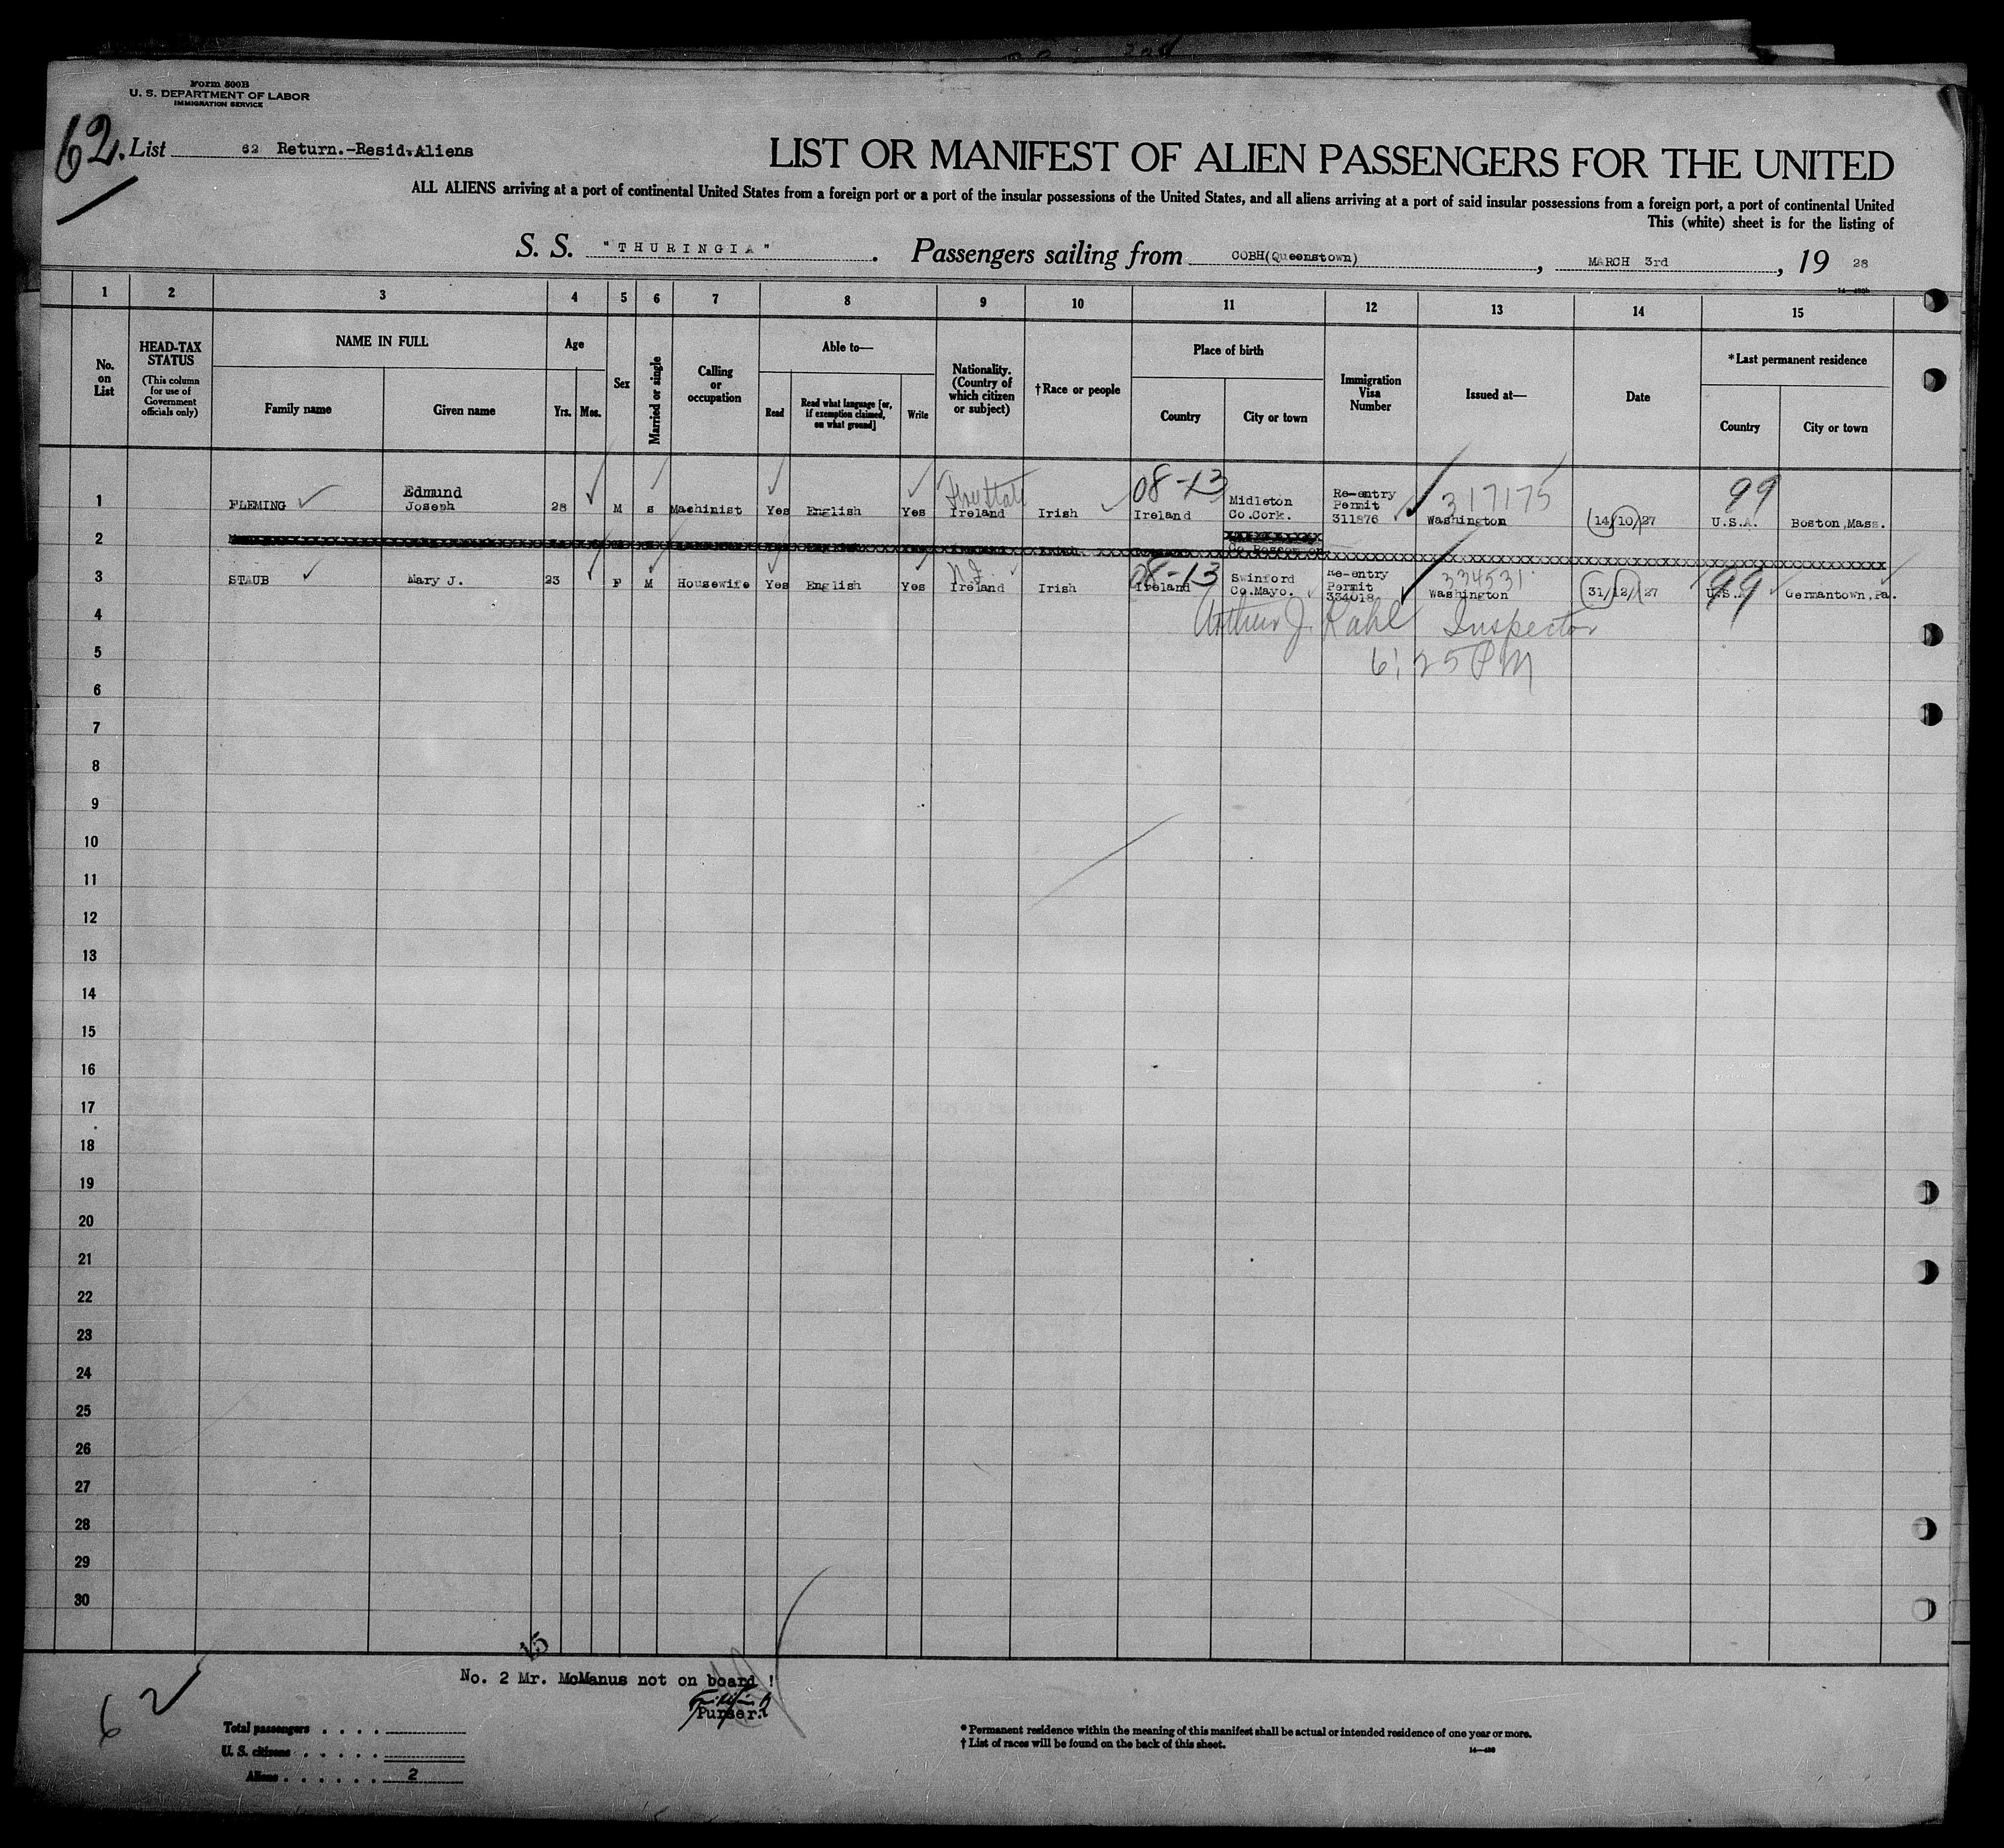 Form 500B
U. S. DEPARTMENT OF LABOR
IMMIGRATION SERVICE
62. List 62 Return.-Resid.Aliens
LIST OR MANIFEST OF ALIEN PASSENGERS FOR THE UNITED
ALL ALIENS arriving at a port of continental United States from a foreign port or a port of the insular possessions of the United States, and all aliens arriving at a port of said insular possessions from a foreign port, a port of continental United
This (white) sheet is for the listing of
S. S. "THURINGIA". Passengers sailing from COBH(Queenstown), MARCH 3rd, 19 28
1 2 3 4 5 6 7 8 9 10 11 12 13 14 15
No. on List
HEAD-TAX STATUS
(This column for use of Government officials only)
NAME IN FULL
Family name
Given name
Age
Yrs.
Mos.
Sex
Married or single
Calling or occupation
Able to—
Read
Read what language [or, if exemption claimed, on what ground]
Write
Nationality. (Country of which citizen or subject)
†Race or people
Place of birth
Country
City or town
Immigration Visa Number
Issued at—
Date
*Last permanent residence
Country
City or town
1 FLEMING Edmund Joseph 28 M s Machinist Yes English Yes Free State Ireland Irish 08-13 Ireland Midleton Co.Cork. Re-entry Permit 311876 317175 Washington 14/10/27 99 U.S.A. Boston,Mass.
2
3 STAUB Mary J. 23 F M Housewife Yes English Yes Ireland Irish 08-13 Ireland Swinford Co.Mayo. Re-entry Permit 334018 334531 Washington 31/12/27 99 U.S.A. Germantown,Pa.
4 Arthur J. Kahl Inspector
5 6:25 PM
6
7
8
9
10
11
12
13
14
15
16
17
18
19
20
21
22
23
24
25
26
27
28
29
30
15
No. 2 Mr. McManus not on board !
Purser.
62
Total passengers
U. S. citizens
Aliens 2
* Permanent residence within the meaning of this manifest shall be actual or intended residence of one year or more.
† List of races will be found on the back of this sheet.